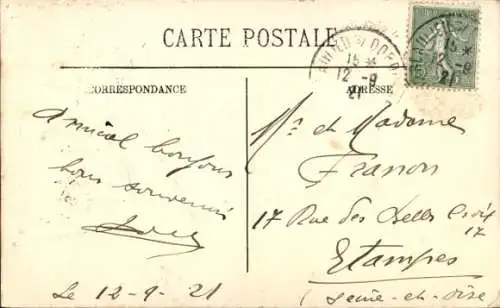 CARTE POSTALE
15 *
12 -9
21
15 *
-9
21
CORRESPONDANCE
ADRESSE
Amical bonjour
bon souvenir
Mr et Madame
Franon
17 Rue des Belles Croix
17
Etampes
(Seine-et-Oise)
Le 12-9-21